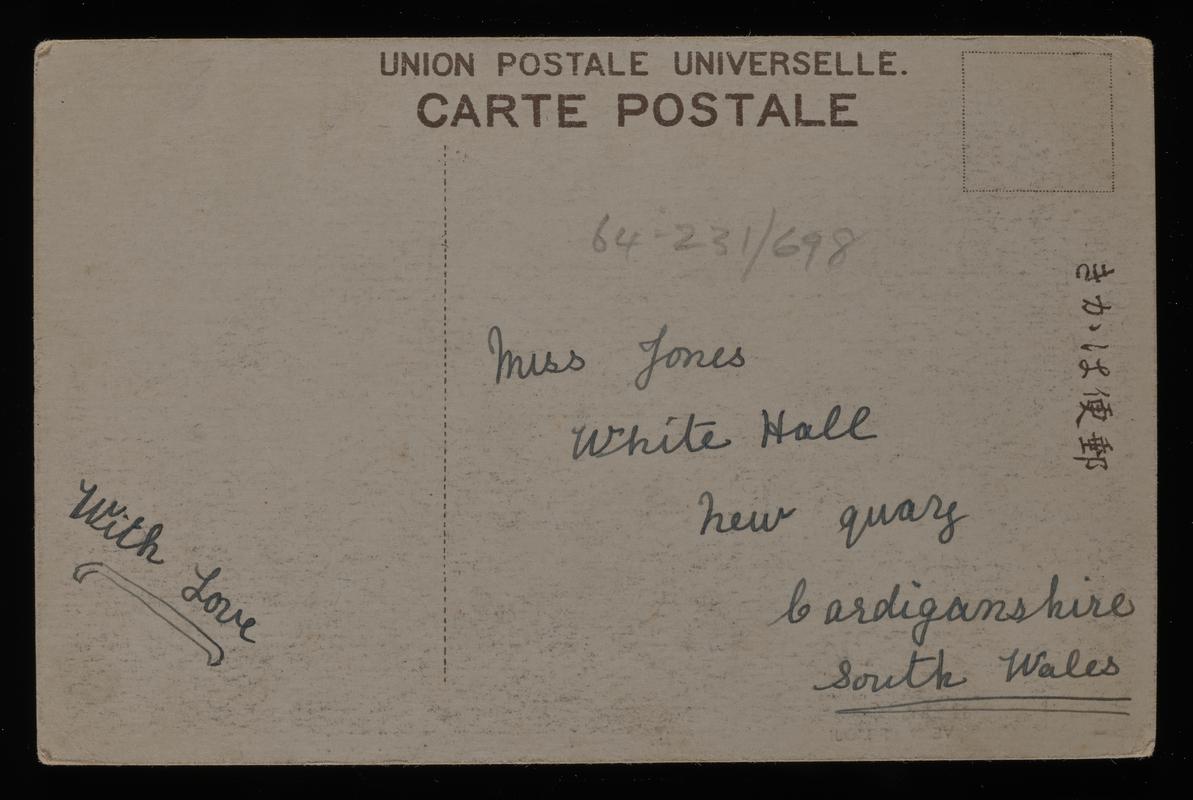 UNION POSTALE UNIVERSELLE.
CARTE POSTALE
64-231/698
きかは便郵
Miss Jones
White Hall
New quay
Cardiganshire
South Wales
With Love